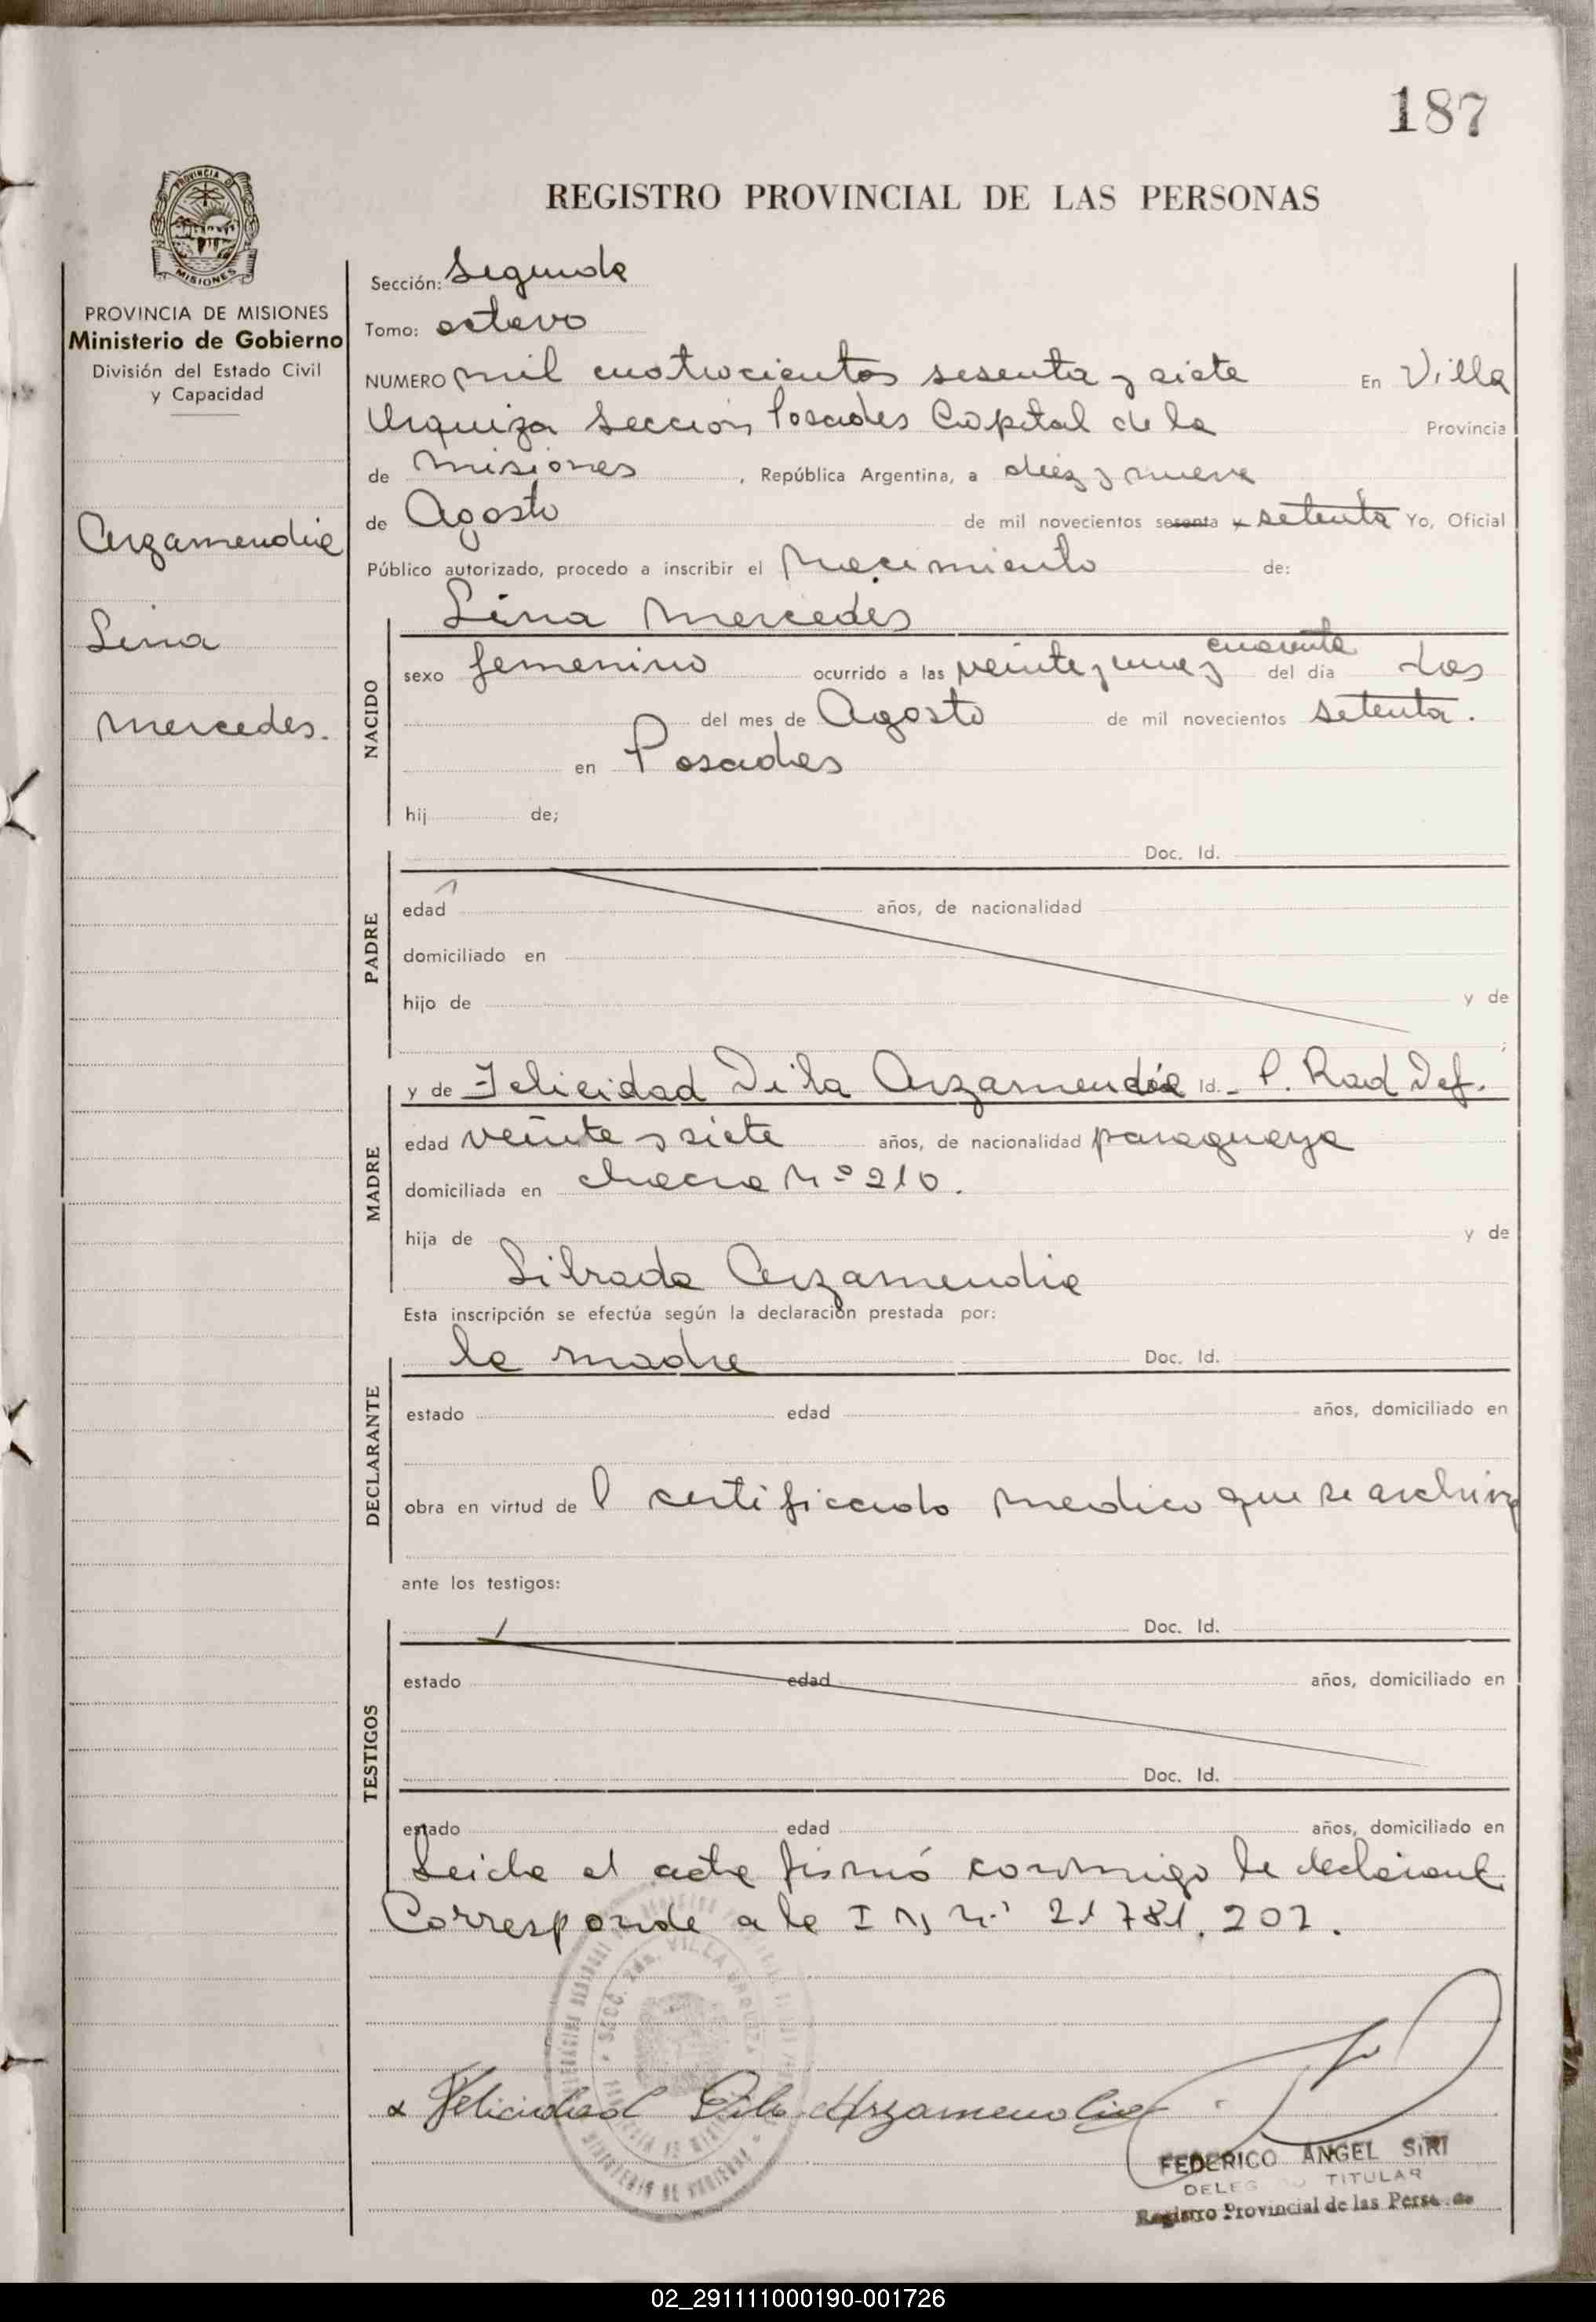 187
REGISTRO PROVINCIAL DE LAS PERSONAS
PROVINCIA DE
MISIONES
PROVINCIA DE MISIONES
Ministerio de Gobierno
División del Estado Civil
y Capacidad
Arzamendia
Lina
Mercedes.
Sección: Segunda
Tomo: octavo
NUMERO mil cuatrocientos sesenta y siete En Villa
Urquiza Sección Posadas Capital de la Provincia
de Misiones, República Argentina, a diez y nueve
de Agosto de mil novecientos sesenta x setenta Yo, Oficial
Público autorizado, procedo a inscribir el nacimiento de:
Lina Mercedes
NACIDO
cuarenta
sexo femenino ocurrido a las veinte y una y del día dos
del mes de Agosto de mil novecientos setenta.
en Posadas
hij de;
PADRE
Doc. Id.
edad años, de nacionalidad
domiciliado en
hijo de y de
;
MADRE
y de Felicidad Dila Arzamendia Id. P. Rad Def.
edad veinte y siete años, de nacionalidad paraguaya
domiciliada en chacra Nº 210.
hija de y de
Librada Arzamendia
Esta inscripción se efectúa según la declaración prestada por:
DECLARANTE
la madre Doc. Id.
estado edad años, domiciliado en
obra en virtud de l certificado medico que se archiva
ante los testigos:
TESTIGOS
Doc. Id.
estado edad años, domiciliado en
Doc. Id.
estado edad años, domiciliado en
Leida el acta firmó conmigo la declarante
Corresponde a la I N, 21 781. 207.
SECC. 2da. VILLA URQUIZA
x Felicidad Dila Arzamendia
FEDERICO ANGEL SIRI
TITULAR
Registro Provincial de las
02_291111000190-001726